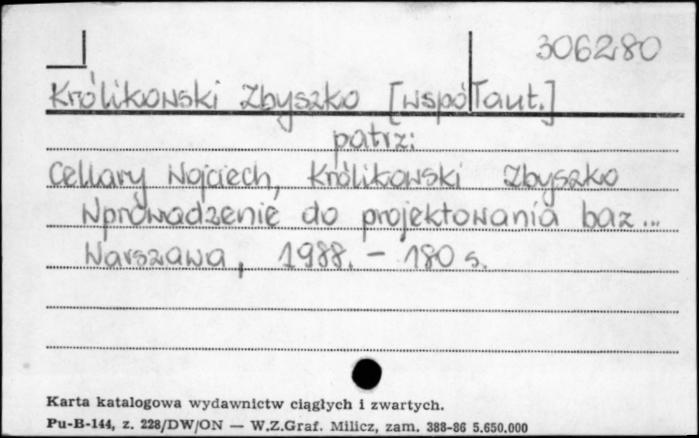 306280
Królikowski Zbyszko [współaut.]
patrz:
Cellary Wojciech, Królikowski Zbyszko
Wprowadzenie do projektowania baz...
Warszawa, 1988. - 180 s.
Karta katalogowa wydawnictw ciągłych i zwartych.
Pu-B-144, z. 228/DW/ON — W.Z.Graf. Milicz, zam. 388-86 5.650.000